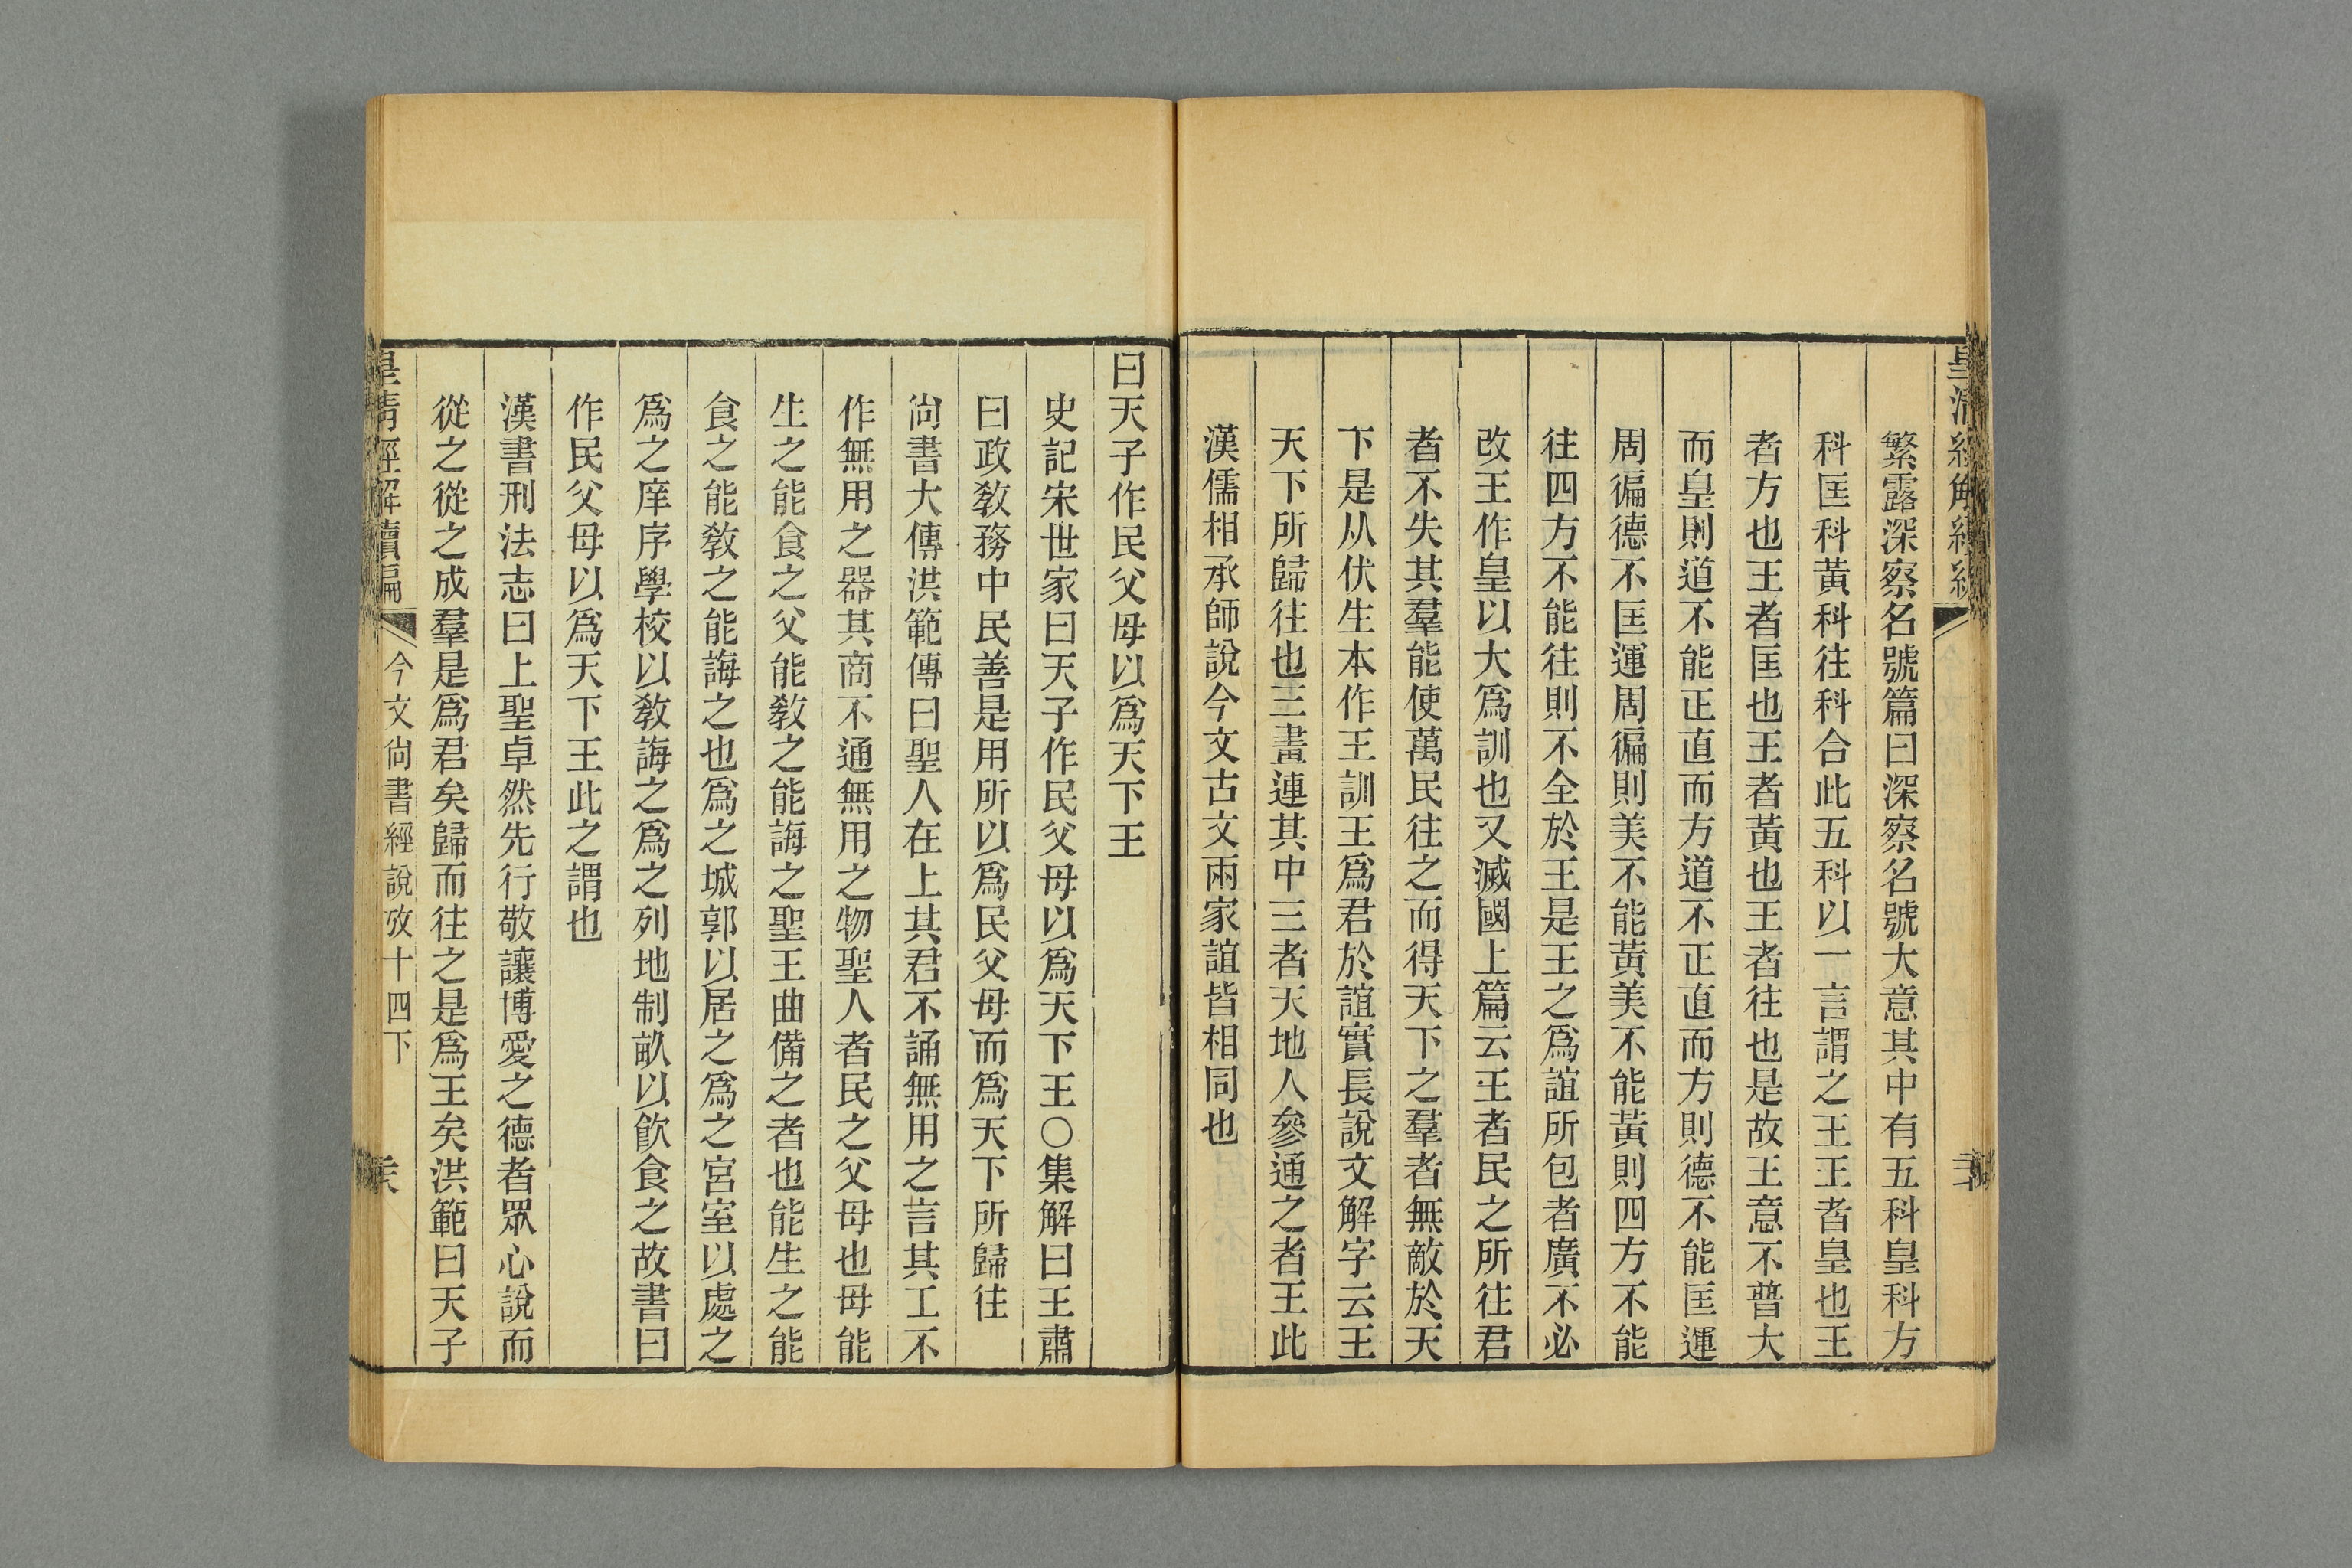 繁露深察名號篇曰深察名號大意其中有五科皇科方
科匡科黃科往科合此五科以一言謂之王王者皇也王
者方也王者匡也王者黃也王者往也是故王意不普大
而皇則道不能正直而方道不正直而方則德不能匡運
周徧德不匡運周徧則美不能黃美不能黃則四方不能
往四方不能往則不全於王是王之爲誼所包者廣不必
改王作皇以大爲訓也又滅國上篇云王者民之所往君
者不失其羣能使萬民往之而得天下之羣者無敵於天
下是从伏生本作王訓王爲君於誼實長說文解字云王
天下所歸往也三畫連其中三者天地人參通之者王此
漢儒相承師說今文古文兩家誼皆相同也
曰天子作民父母以爲天下王
史記宋世家曰天子作民父母以爲天下王○集解曰王肅
曰政敎務中民善是用所以爲民父母而爲天下所歸往
尙書大傳洪範傳曰聖人在上其君不誦無用之言其工不
作無用之器其商不通無用之物聖人者民之父母也母能
生之能食之父能敎之能誨之聖王曲備之者也能生之能
食之能敎之能誨之也爲之城郭以居之爲之宮室以處之
爲之庠序學校以敎誨之爲之列地制畝以飮食之故書曰
作民父母以爲天下王此之謂也
漢書刑法志曰上聖卓然先行敬讓博愛之德者眾心說而
從之從之成羣是爲君矣歸而往之是爲王矣洪範曰天子
皇清經解續編 今文尙書經說攷十四下